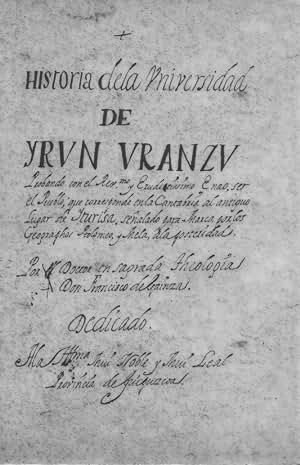 Historia dela Vniversidad
DE
YRVN VRANZV
Probando con el Rev.mo y Eruditissimo Enao, ser
el Pueblo, que corresponde en la Cantabria al antiguo
Lugar de Iturisa, señalado para Marca por los
Geographos Ptolomeo, y Mela, à la posteridad.
Por el Doctor en sagrada Theologia
Don Francisco de Gainza.
Dedicado.
A la Ittma Mui Noble y Mui Leal
Provincia de Guipuzcoa.